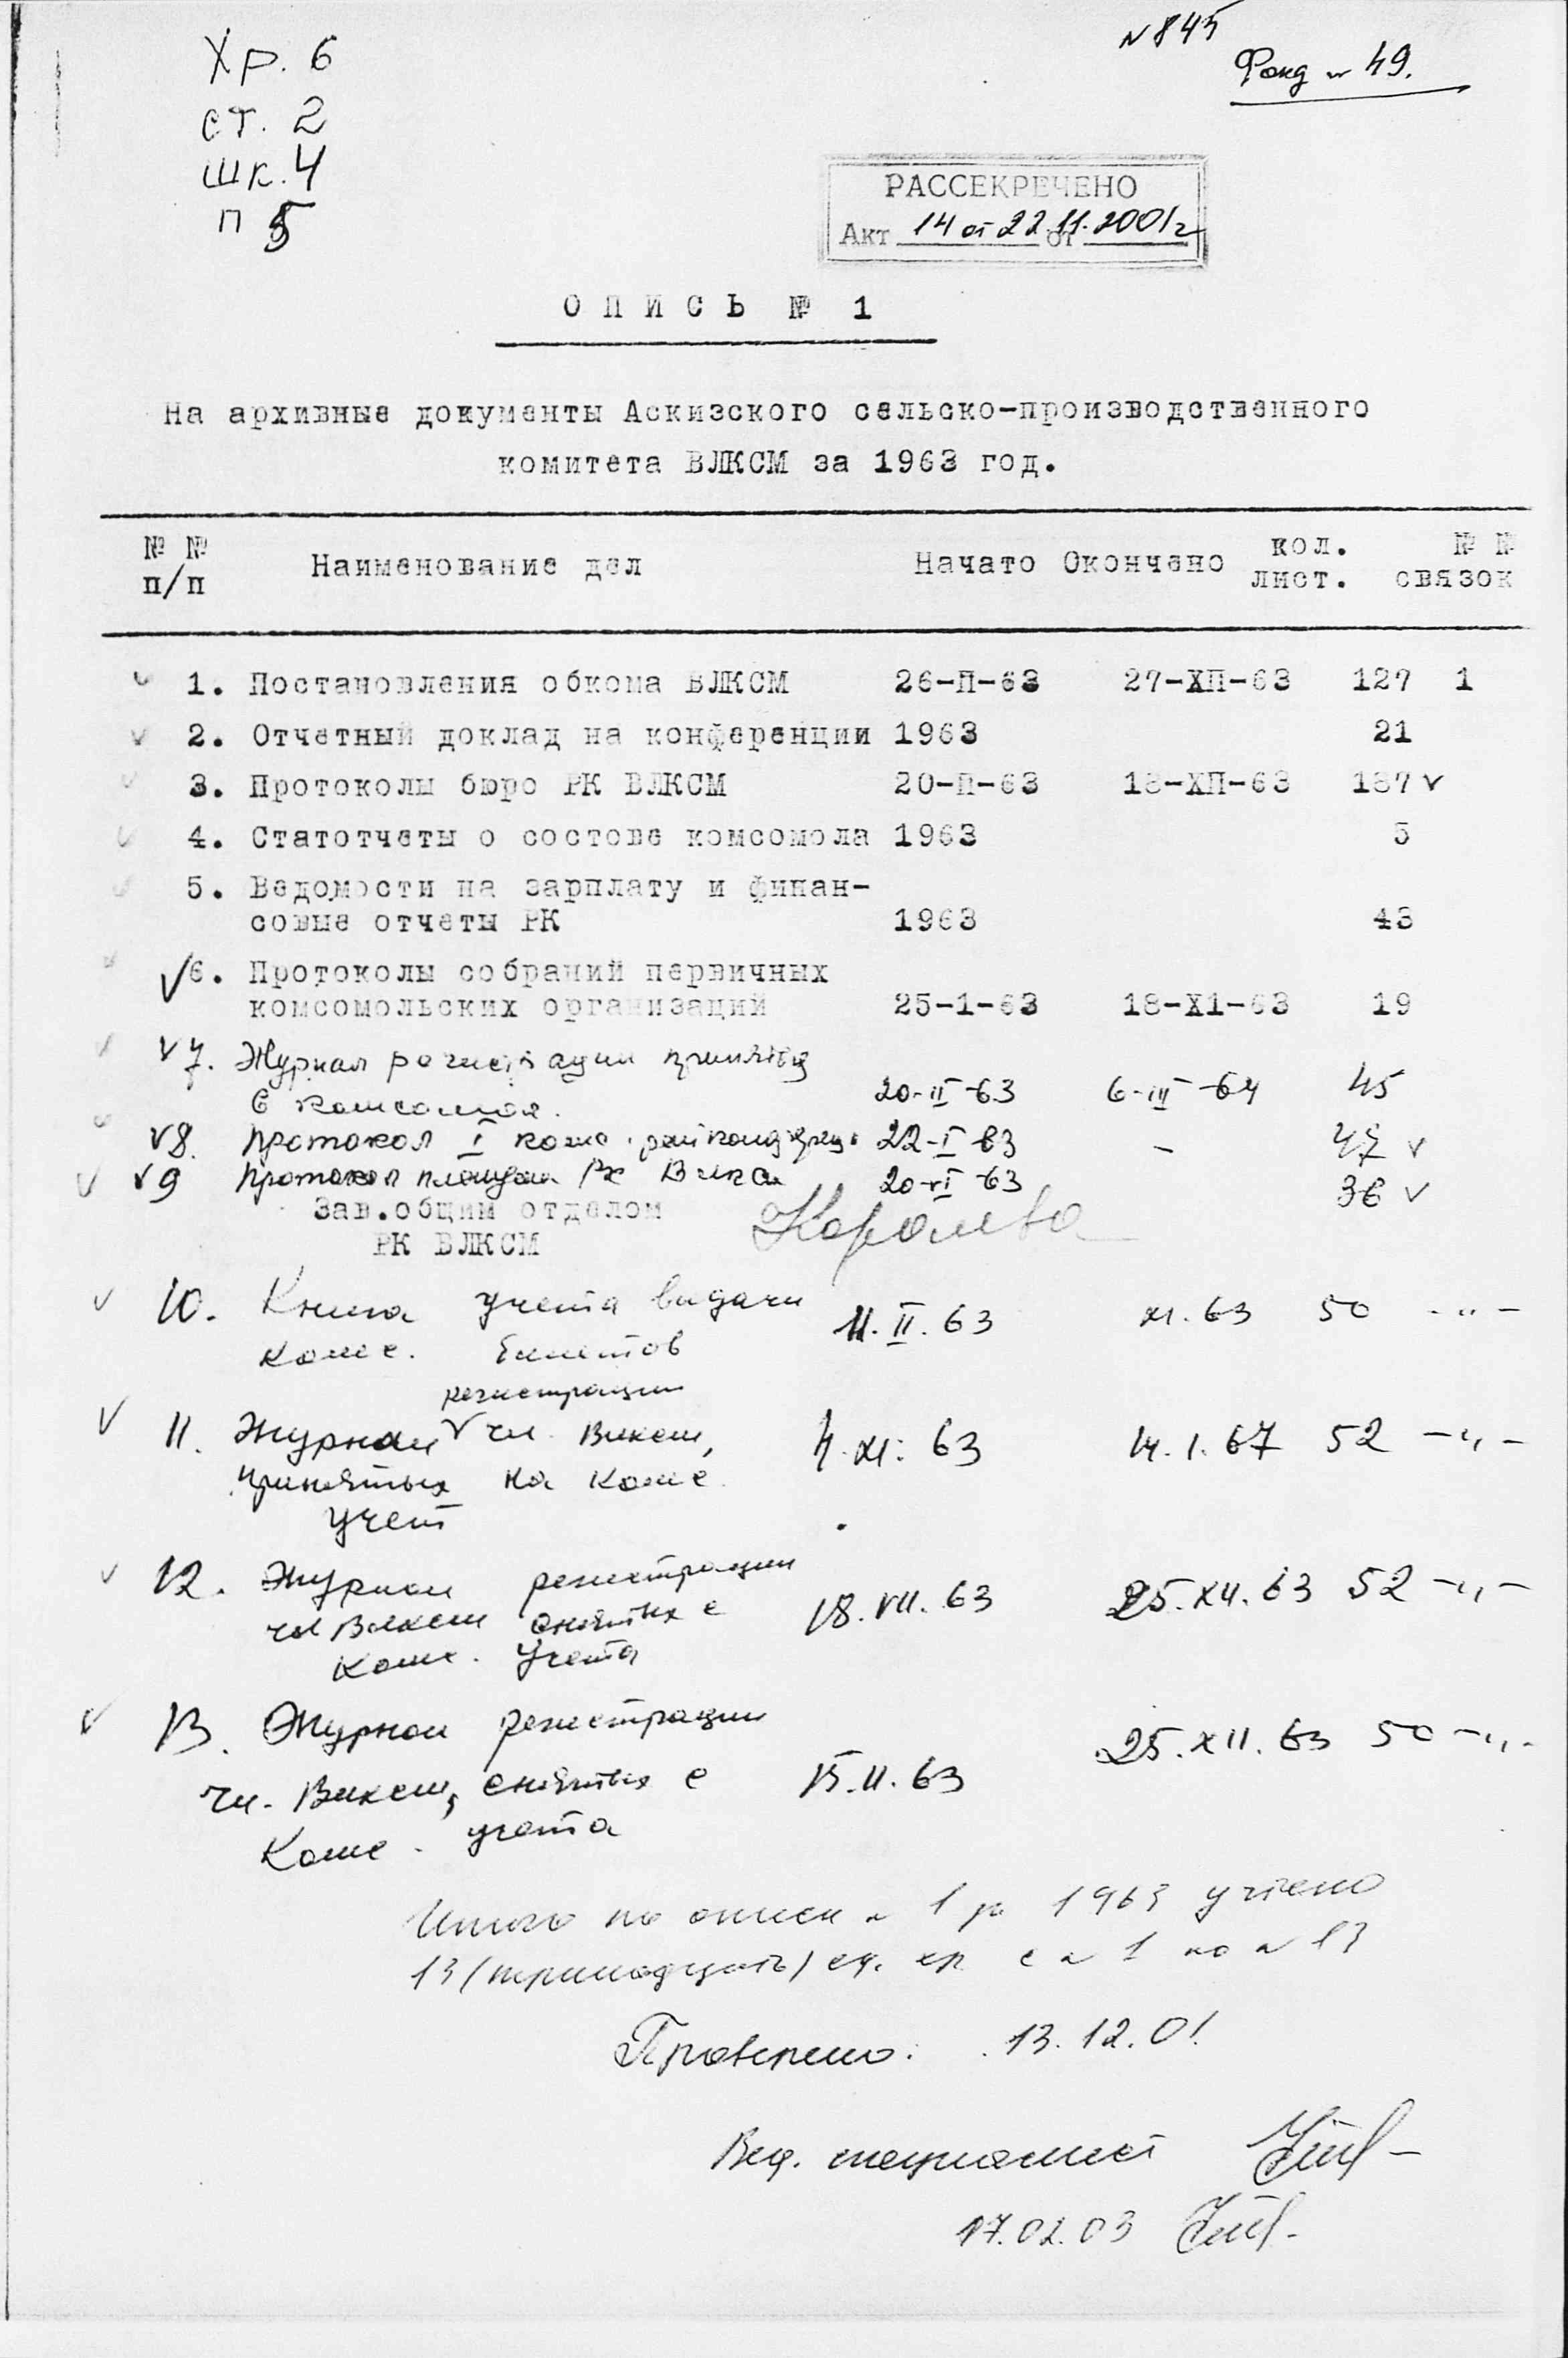 Хр. 6
ст. 2
шк. 4
п 5
N 845
Фонд N 49.
РАССЕКРЕЧЕНО
Акт 14 от 22.11.2001г от
ОПИСЬ № 1
На архивные документы Аскизского сельско-производственного
комитета ВЛКСМ за 1963 год.
№ № п/п Наименование дел Начато Окончено кол. лист. № № связок
1. Постановления обкома ВЛКСМ 26-П-63 27-ХП-63 127 1
2. Отчетный доклад на конференции 1963 21
3. Протоколы бюро РК ВЛКСМ 20-П-63 18-ХП-63 187
4. Статотчеты о состове комсомола 1963 5
5. Ведомости на зарплату и финан-
совые отчеты РК 1963 43
6. Протоколы собраний первичных
комсомольских организаций 25-1-63 18-Х1-63 19
7. Журнал регистрации принятых
в комсомол. 20-II-63 6-III-64 45
8. Протокол I комс. 22-I-63 - 47
9 Протокол пленума РК ВЛКСМ 20-VI-63 36
Зав.общим отделом
РК ВЛКСМ
Королева
10. Книга учета выдачи 11.II.63 XI.63 50 -"-
комс. билетов
регистрации
11. Журнал чл. ВЛКСМ, 4.XI.63 14.1.67 52 -"-
принятых на комс.
учет
12. Журнал регистрации
чл ВЛКСМ снятых с 18.VII.63 25.XII.63 52 -"-
комс. учета
13. Журнал регистрации 25.XII.63 50 -"-
чл. ВЛКСМ, снятых с 15.II.63
комс. учета
Итого по описи N 1 за 1963 учтено
13 (тринадцать) ед. хр. с N 1 по N 13
Проверено: 13.12.01
Вед. специалист
17.02.03